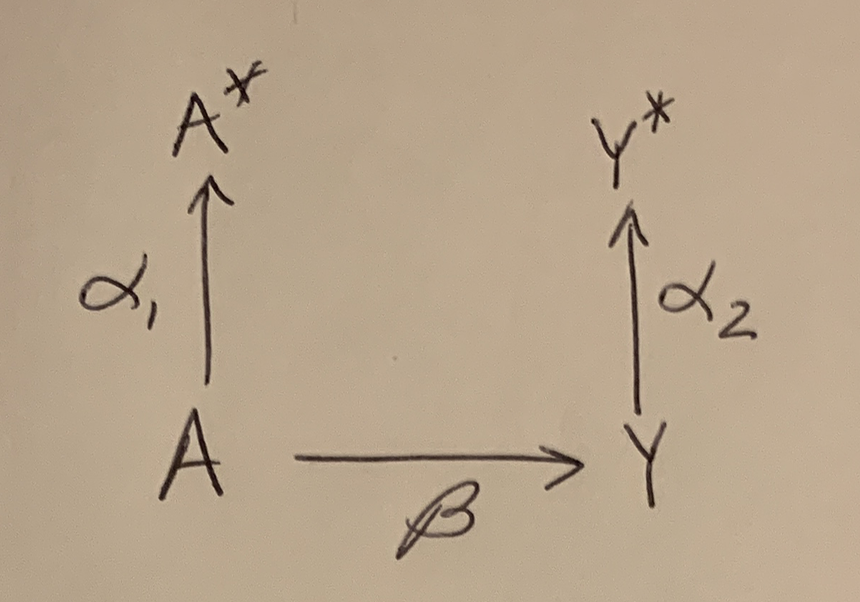 A* Y*
α₁ α₂
A Y
β